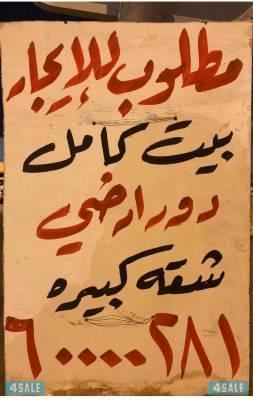 مطلوب للإيجار
بيت كامل
دور ارضي
شقه كبيره
٦٠٠٠٠٢٨١
4SALE 4SALE